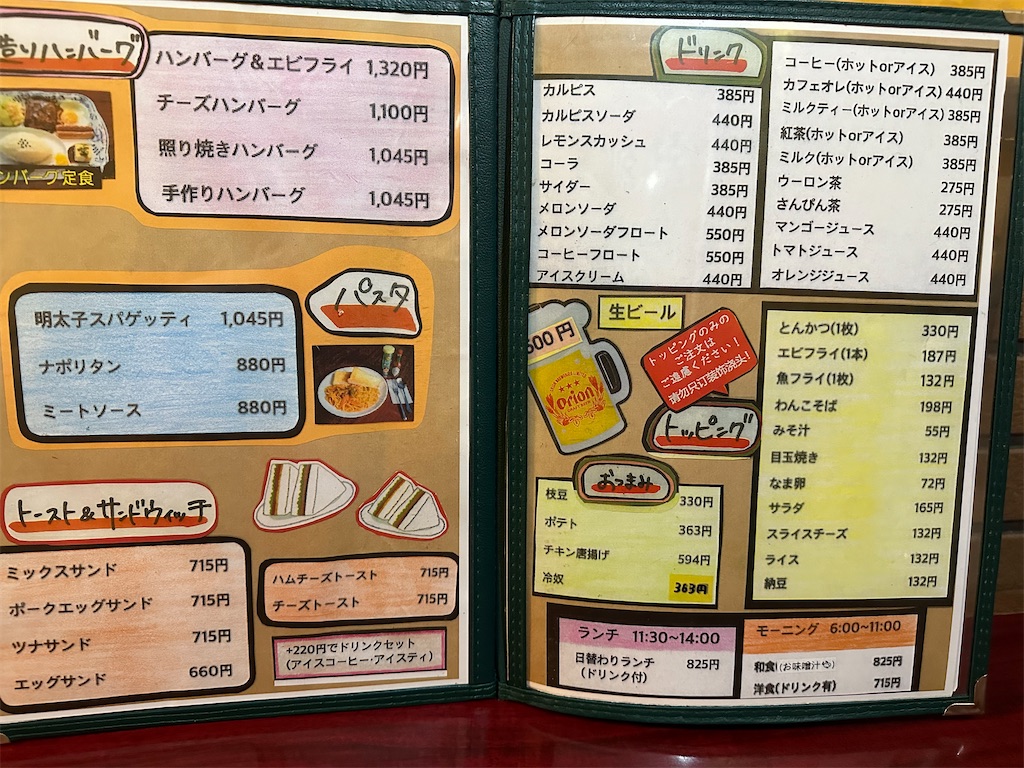 造りハンバーグ
ハンバーグ&エビフライ 1,320円
チーズハンバーグ 1,100円
照り焼きハンバーグ 1,045円
手作りハンバーグ 1,045円
ンバーグ定食
パスタ
明太子スパゲッティ 1,045円
ナポリタン 880円
ミートソース 880円
トースト&サンドウィッチ
ミックスサンド 715円
ポークエッグサンド 715円
ツナサンド 715円
エッグサンド 660円
ハムチーズトースト 715円
チーズトースト 715円
+220円でドリンクセット
(アイスコーヒー・アイスティ)
ドリンク
カルピス 385円
カルピスソーダ 440円
レモンスカッシュ 440円
コーラ 385円
サイダー 385円
メロンソーダ 440円
メロンソーダフロート 550円
コーヒーフロート 550円
アイスクリーム 440円
コーヒー(ホットorアイス) 385円
カフェオレ(ホットorアイス) 440円
ミルクティー(ホットorアイス) 385円
紅茶(ホットorアイス) 385円
ミルク(ホットorアイス) 385円
ウーロン茶 275円
さんぴん茶 275円
マンゴージュース 440円
トマトジュース 440円
オレンジジュース 440円
生ビール
600円
Orion
トッピングのみの
ご注文は
ご遠慮ください!
请勿只订装饰浇头!
トッピング
とんかつ(1枚) 330円
エビフライ(1本) 187円
魚フライ(1枚) 132円
わんこそば 198円
みそ汁 55円
目玉焼き 132円
なま卵 72円
サラダ 165円
スライスチーズ 132円
ライス 132円
納豆 132円
おつまみ
枝豆 330円
ポテト 363円
チキン唐揚げ 594円
冷奴 363円
ランチ 11:30~14:00
日替わりランチ 825円
(ドリンク付)
モーニング 6:00~11:00
和食(お味噌汁や) 825円
洋食(ドリンク有) 715円